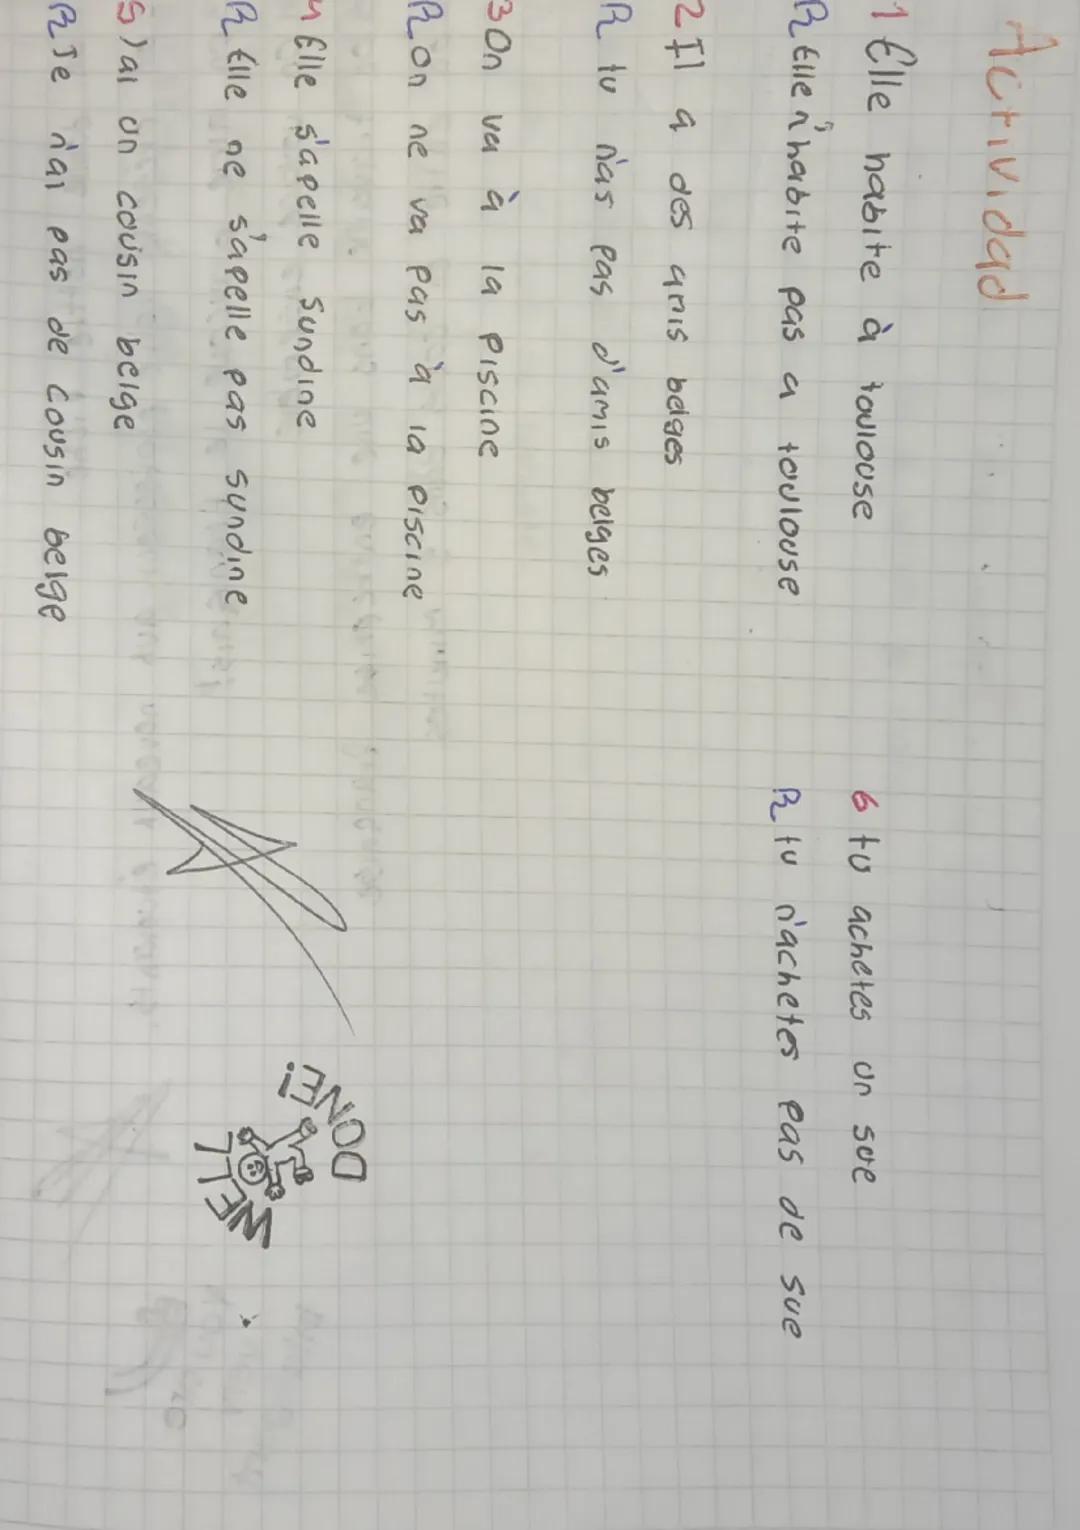 Actividad
1 Elle habite à toulouse
R Elle n'habite pas a toulouse
2 Il a des amis belges
R tu n'as pas d'amis belges
3 On va à la piscine
R On ne va pas à la piscine
4 Elle s'apelle Sundine
R Elle ne s'apelle pas sundine
5 J'ai un cousin belge
R Je n'ai pas de cousin belge
6 tu achetes un sue
R tu n'achetes pas de sue
WELL
DONE!